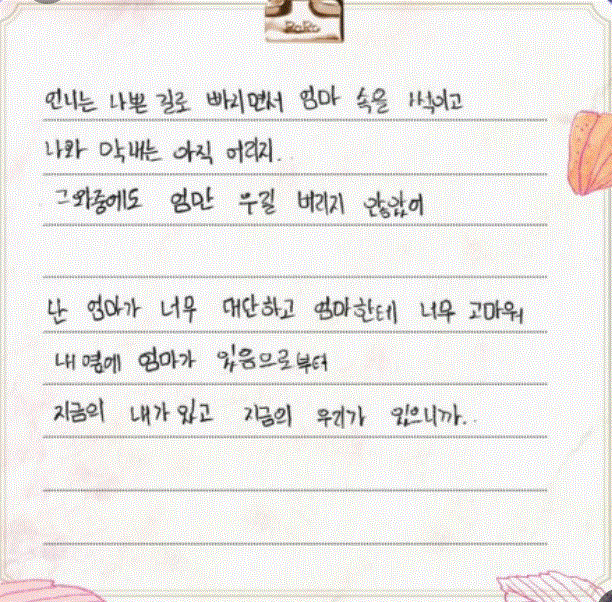 BoBo
언니는 나쁜 길로 빠지면서 엄마 속을 썩이고
나와 막내는 아직 어리지.
그와중에도 엄만 우릴 버리지 않았어
난 엄마가 너무 대단하고 엄마한테 너무 고마워
내 옆에 엄마가 있음으로부터
지금의 내가 있고 지금의 우리가 있으니까..